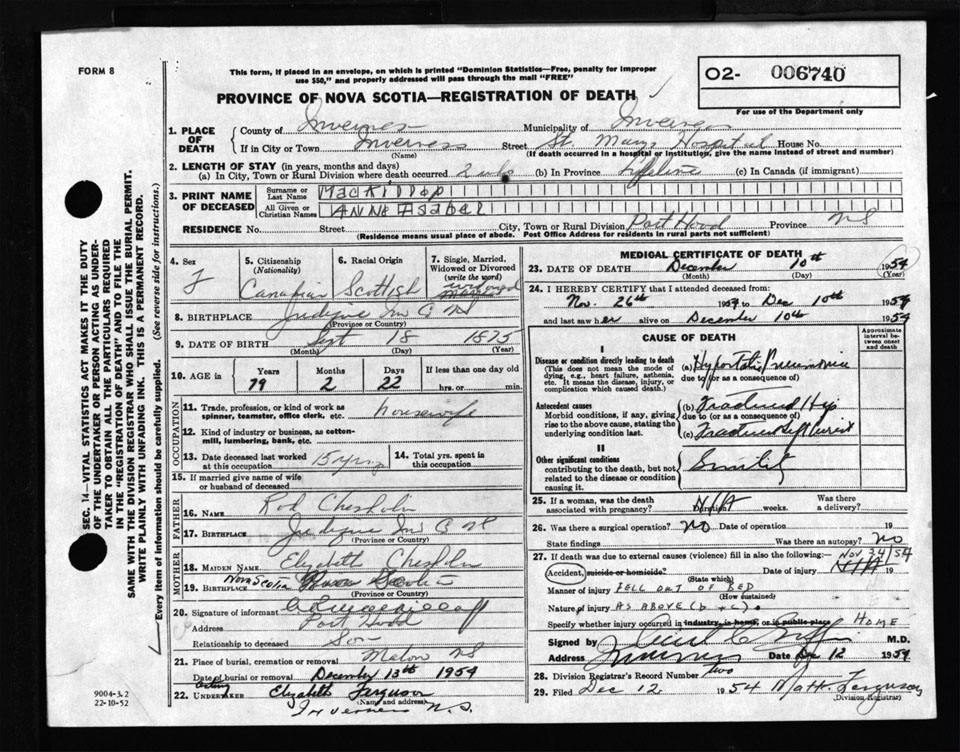 FORM 8
This form, if placed in an envelope, on which is printed "Dominion Statistics—Free, penalty for improper
use $50," and properly addressed will pass through the mail "FREE"
O2- 006740
For use of the Department only
PROVINCE OF NOVA SCOTIA—REGISTRATION OF DEATH
1. PLACE OF DEATH
County of Inverness Municipality of Inverness
If in City or Town Inverness Street St. Marys Hospital House No.
(Name) (If death occurred in a hospital or institution, give the name instead of street and number)
2. LENGTH OF STAY (in years, months and days)
(a) In City, Town or Rural Division where death occurred 2 wks (b) In Province Lifetime (c) In Canada (if immigrant)
3. PRINT NAME OF DECEASED
Surname or Last Name MacKillop
All Given or Christian Names ANNE ISABEL
RESIDENCE No. Street City, Town or Rural Division Port Hood Province NS
(Residence means usual place of abode. Post Office Address for residents in rural parts not sufficient)
4. Sex F
5. Citizenship (Nationality) Canadian
6. Racial Origin Scottish
7. Single, Married, Widowed or Divorced (write the word)
8. BIRTHPLACE Judique Inv C NS
(Province or Country)
9. DATE OF BIRTH Sept 18 1875
(Month) (Day) (Year)
10. AGE in Years 79 Months 2 Days 22 If less than one day old hrs. or min.
OCCUPATION
11. Trade, profession, or kind of work as spinner, teamster, office clerk, etc. housewife
12. Kind of industry or business, as cotton-mill, lumbering, bank, etc.
13. Date deceased last worked at this occupation 15 yrs
14. Total yrs. spent in this occupation
15. If married give name of wife or husband of deceased
FATHER
16. NAME Rod Chisholm
17. BIRTHPLACE Judique Inv C NS
(Province or Country)
MOTHER
18. MAIDEN NAME Elizabeth Chisholm
19. BIRTHPLACE Nova Scotia
(Province or Country)
20. Signature of informant
Address Port Hood
Relationship to deceased Son
21. Place of burial, cremation or removal Mabou NS
Date of burial or removal December 13th 1954
22. Acting UNDERTAKER Elizabeth Ferguson
(Name and address)
Inverness N.S.
MEDICAL CERTIFICATE OF DEATH
23. DATE OF DEATH December 10th 1954
(Month) (Day) (Year)
24. I HEREBY CERTIFY that I attended deceased from:
Nov. 26th 1954 to Dec 10th 1954
and last saw her alive on December 10th 1954
CAUSE OF DEATH
Approximate interval between onset and death
I
Disease or condition directly leading to death
(This does not mean the mode of dying, e.g., heart failure, asthenia, etc. It means the disease, injury, or complication which caused death.)
(a) Hypostatic Pneumonia
due to (or as a consequence of)
Antecedent causes
Morbid conditions, if any, giving rise to the above cause, stating the underlying condition last.
(b) Fractured Hip
due to (or as a consequence of)
(c) Fractured left wrist
II
Other significant conditions
contributing to the death, but not related to the disease or condition causing it.
Senility
25. If a woman, was the death associated with pregnancy? N/A Duration? weeks. Was there a delivery?
26. Was there a surgical operation? No Date of operation 19
State findings Was there an autopsy? No
27. If death was due to external causes (violence) fill in also the following:— Nov 24/54
Accident, suicide or homicide? Date of injury N/A 19
(State which)
Manner of injury FELL OUT OF BED
(How sustained)
Nature of injury AS ABOVE (b + c).
Specify whether injury occurred in industry, in home, or in public place HOME
Signed by M.D.
Address Inverness Date Dec 12 1954
28. Division Registrar's Record Number Two
29. Filed Dec 12 1954 Ferguson
(Division Registrar)
SEC. 14—VITAL STATISTICS ACT MAKES IT THE DUTY
OF THE UNDERTAKER OR PERSON ACTING AS UNDER-
TAKER TO OBTAIN ALL THE PARTICULARS REQUIRED
IN THE "REGISTRATION OF DEATH" AND TO FILE THE
SAME WITH THE DIVISION REGISTRAR WHO SHALL ISSUE THE BURIAL PERMIT.
WRITE PLAINLY WITH UNFADING INK. THIS IS A PERMANENT RECORD.
Every item of information should be carefully supplied. (See reverse side for instructions.)
9004-3.2
22-10-52